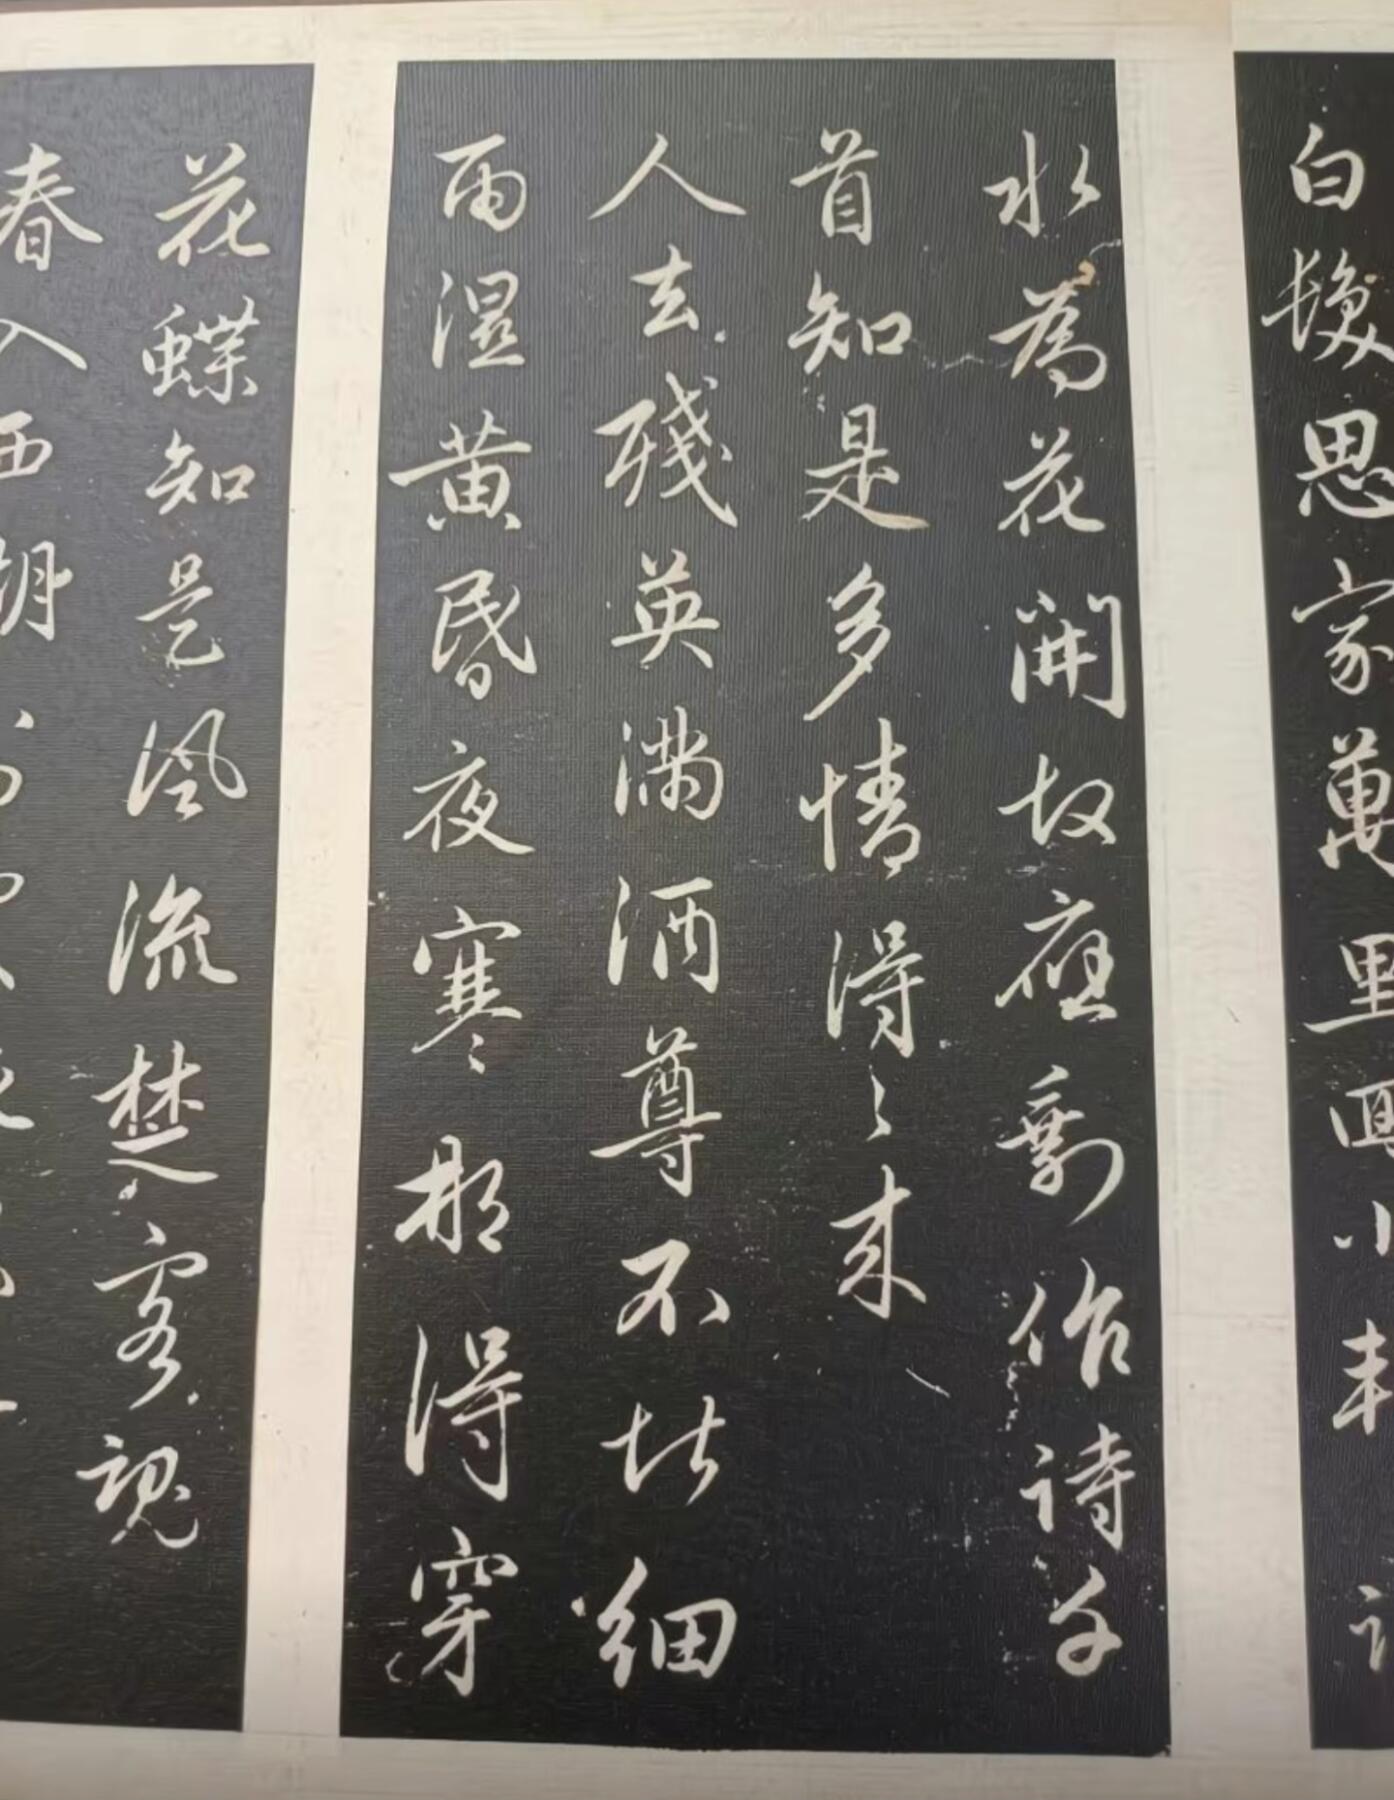 白髮思家萬里回小軒
水為花開故應剩作詩千
首知是多情得〻來
人去殘英滿酒尊不堪細
雨濕黃昏夜寒那得穿
花蝶知是風流楚客魂
春入西湖